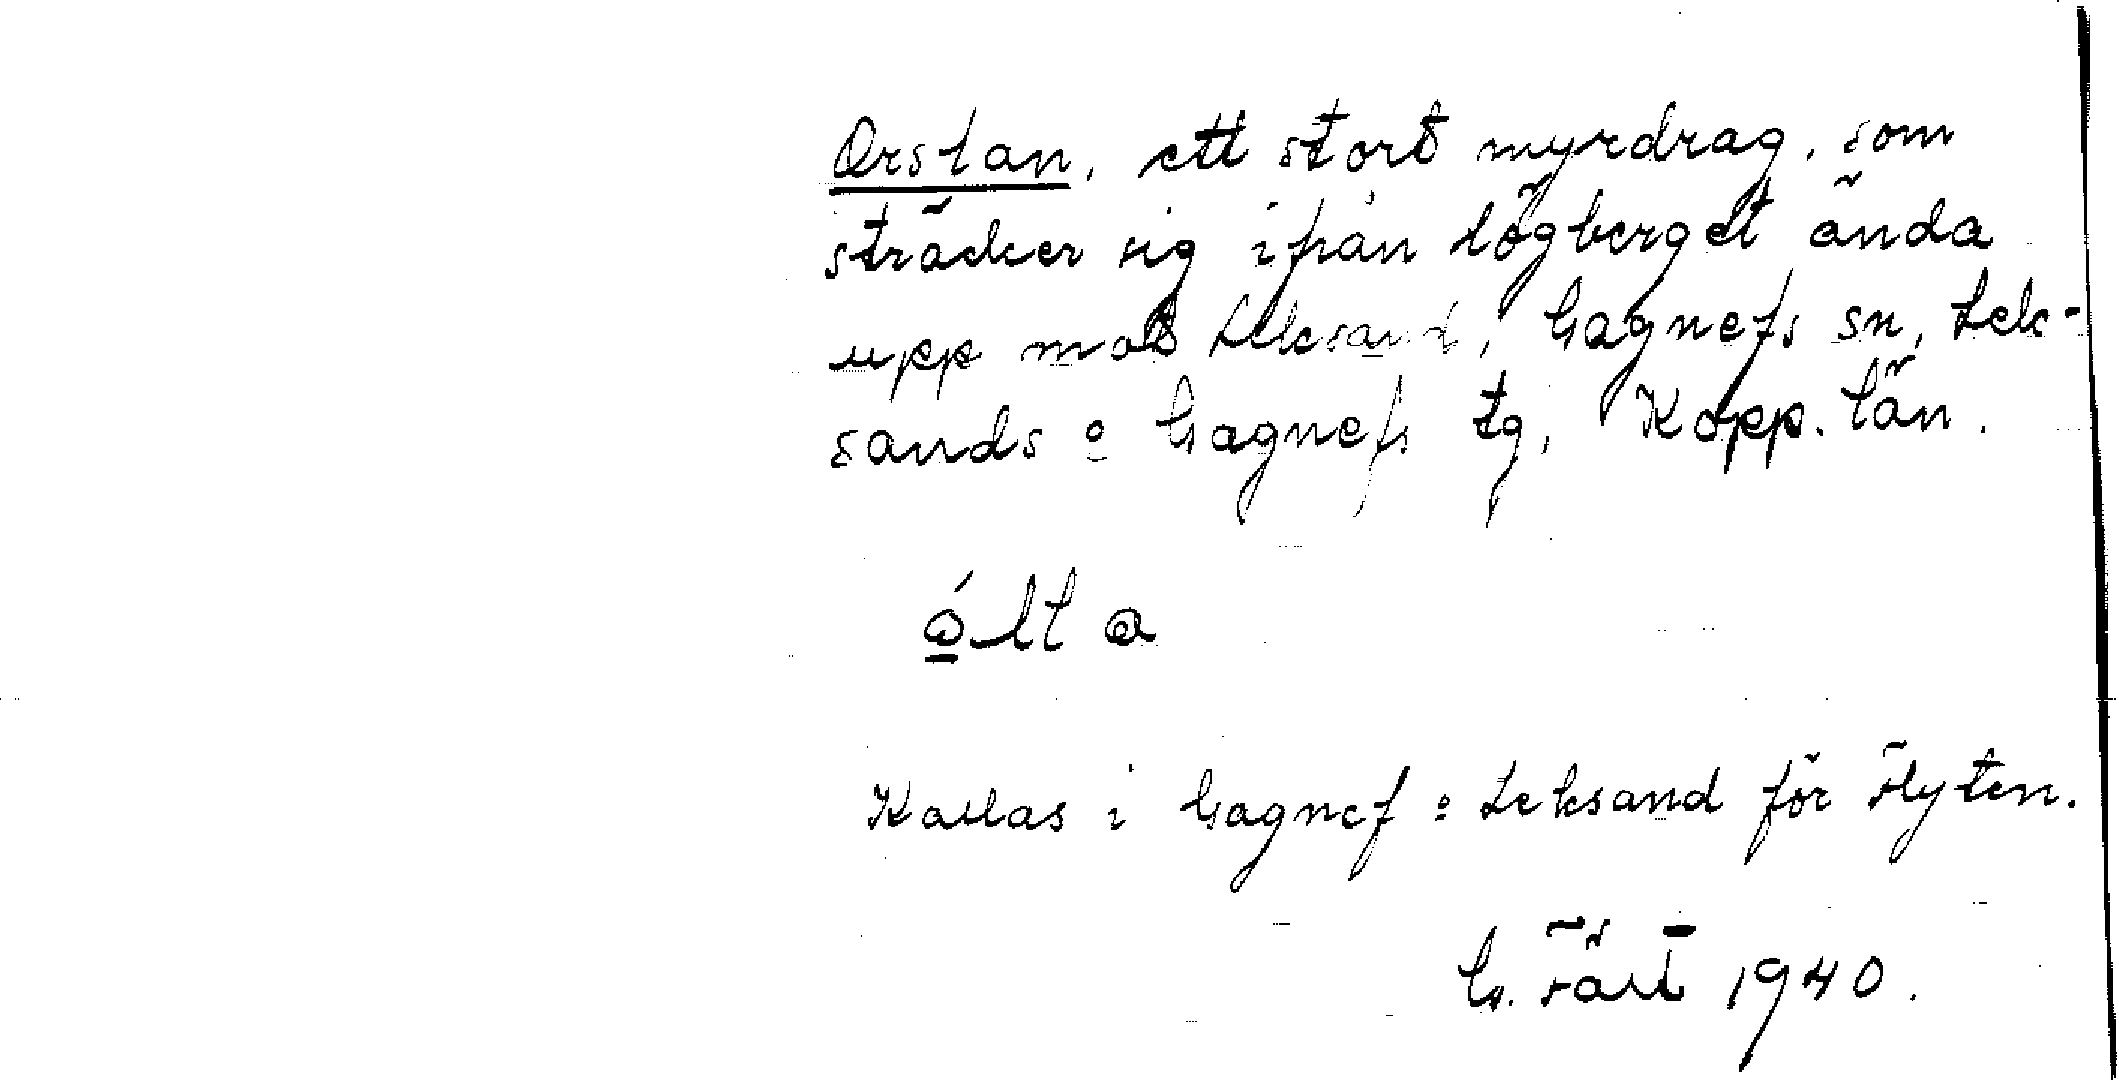 Orstan, ett stort myrdrag, som
sträcker sig ifrån lögberget ända
upp mot Leksand, Gagnefs sn, Lek-
sands o Gagnefs tg, Kopp. län.
Kallas i Gagnef o Leksand för Flyten.
G. 1940.